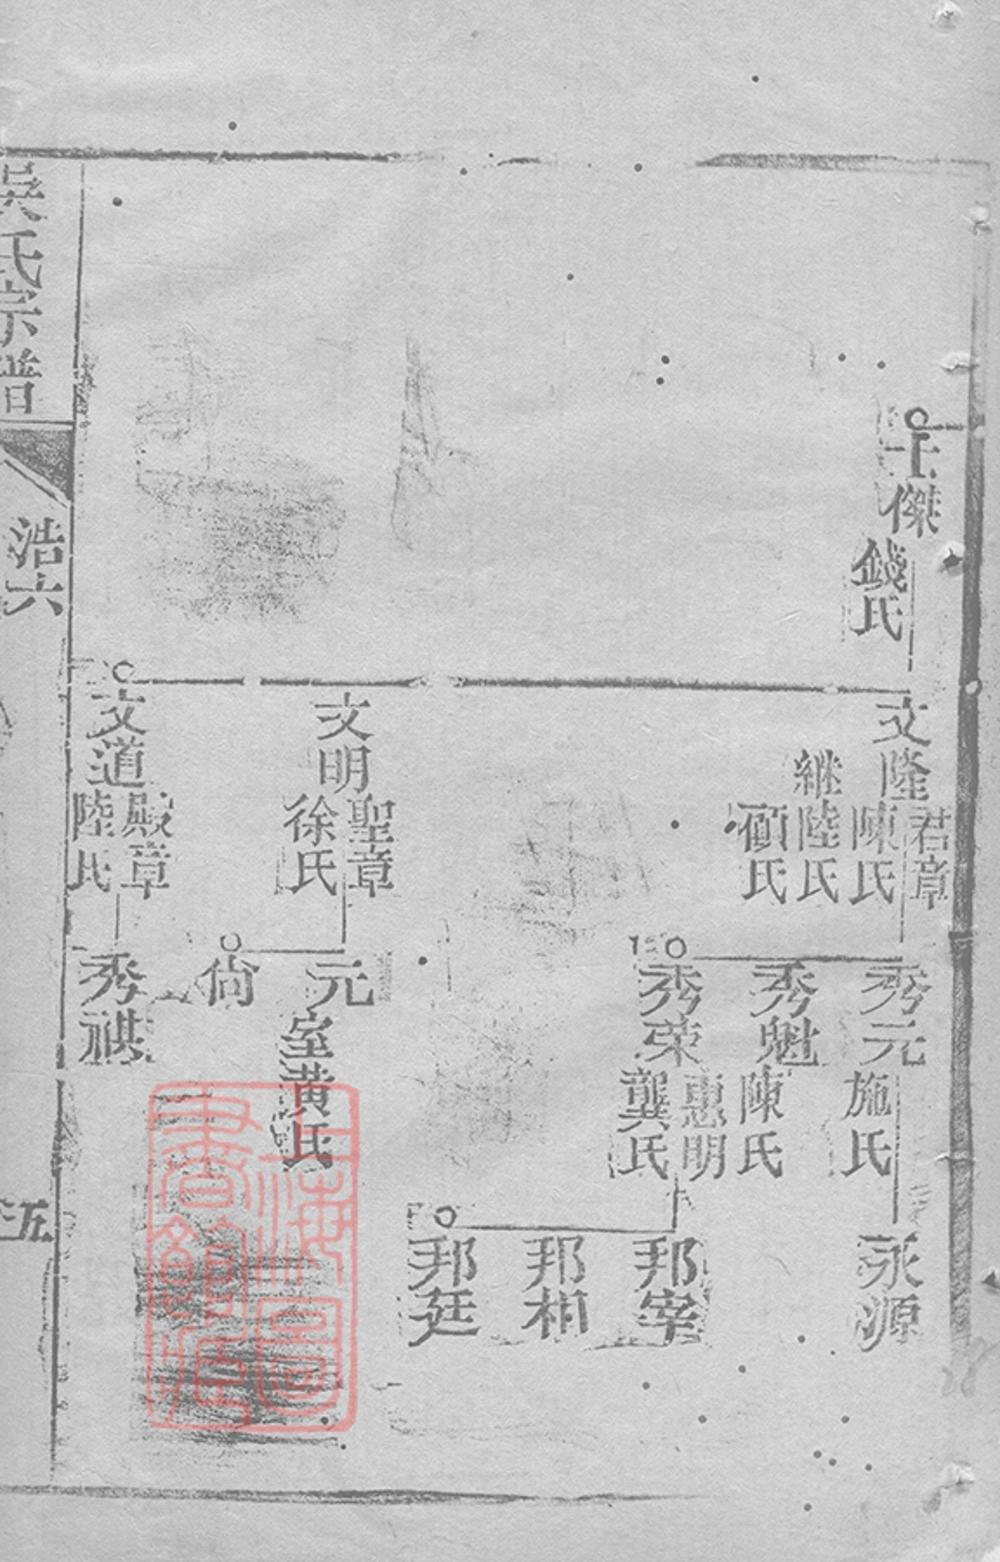 士傑
錢氏
文隆
君章
陳氏
繼陸氏
顧氏
文明
聖章
徐氏
文道
殿章
陸氏
秀元
施氏
秀魁
陳氏
秀荣
惠明
龔氏
元
室黄氏
尚
秀祺
永源
邦宰
邦相
邦廷
吳氏宗譜
浩六
五
上海圖
書館藏